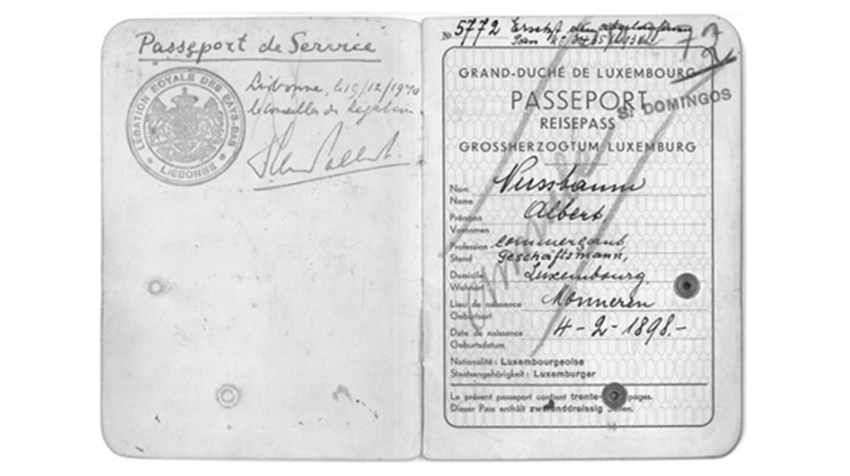 Passeport de Service
LEGATION ROYALE DES PAYS-BAS
LISBONNE
Lisbonne, le 19/12/1940
le Conseiller de légation
№ 5772 Ersetzt den
SI DOMINGOS
GRAND-DUCHÉ DE LUXEMBOURG
PASSEPORT
REISEPASS
GROSSHERZOGTUM LUXEMBURG
Nom Nussbaum
Name
Prénoms Albert
Vornamen
Profession commerçant,
Stand Geschäftsmann,
Domicile Luxembourg.
Wohnort
Lieu de naissance Monneren
Geburtsort
Date de naissance 4-2-1898.-
Geburtsdatum
Nationalité : Luxembourgeoise
Staatsangehörigkeit : Luxemburger
Le présent passeport contient trente- pages.
Dieser Pass enthält zweiunddreissig Seiten.